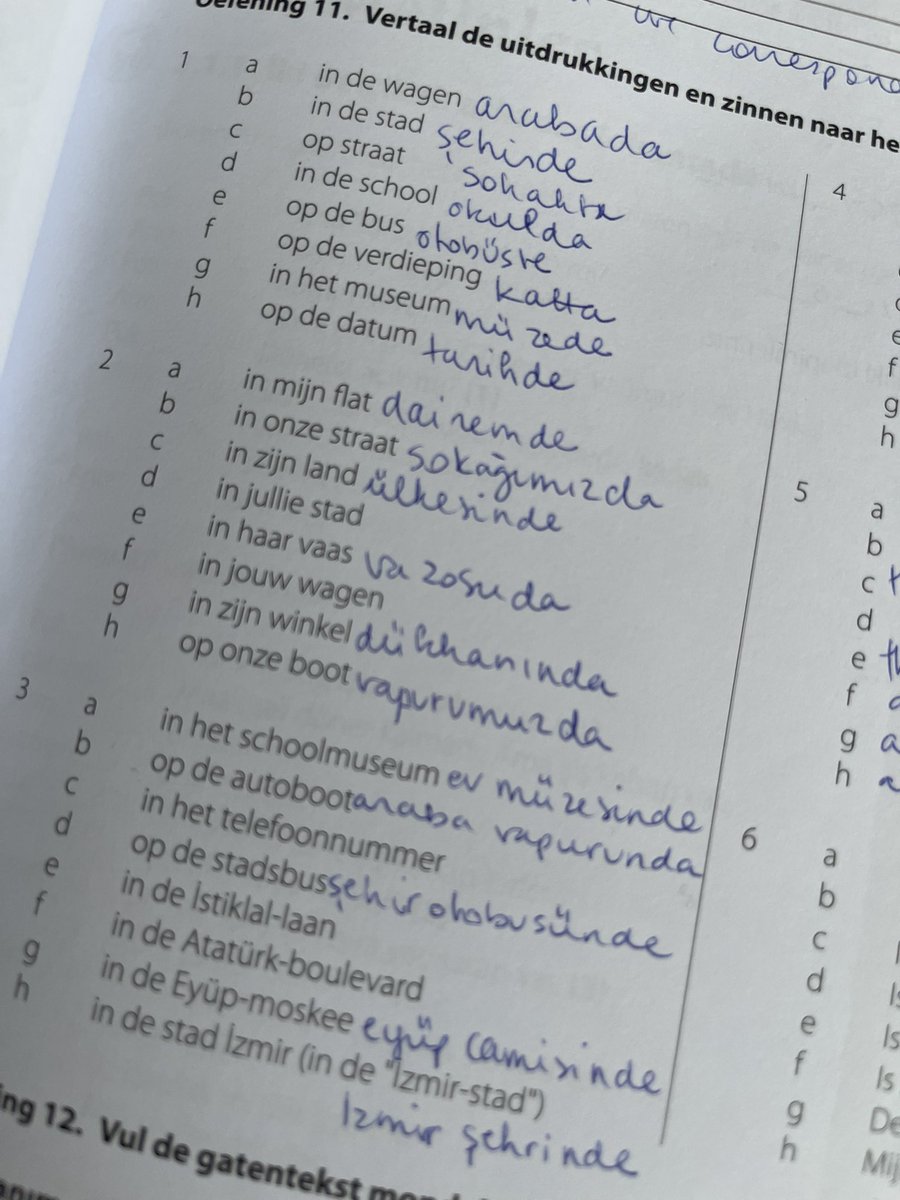 Oefening 11. Vertaal de uitdrukkingen en zinnen naar he
we correspond
1 a in de wagen arabada
b in de stad şehirde
c op straat sokakta
d in de school okulda
e op de bus otobüste
f op de verdieping katta
g in het museum müzede
h op de datum tarihde
2 a in mijn flat dairemde
b in onze straat sokağımızda
c in zijn land ülkesinde
d in jullie stad
e in haar vaas vazosuda
f in jouw wagen
g in zijn winkel dükkanında
h op onze boot vapurumuzda
3 a in het schoolmuseum ev müzesinde
b op de autoboot araba vapurunda
c in het telefoonnummer
d op de stadsbus şehir otobusünde
e in de İstiklal-laan
f in de Atatürk-boulevard
g in de Eyüp-moskee eyüp camisinde
h in de stad İzmir (in de "İzmir-stad")
Izmir şehrinde
ing 12. Vul de gatentekst
4
e
f
g
h
5 a
b
c
d
e
f
g a
h a
6 a
b
c
d Is
e Is
f Is
g De
h Mij